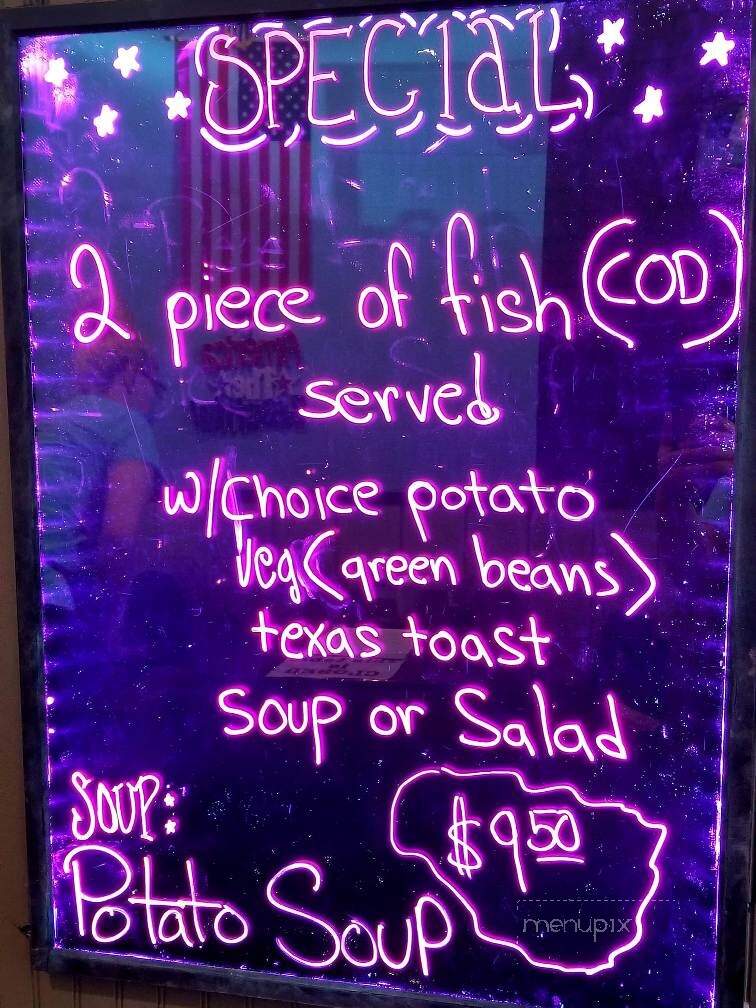 SPECIAL
2 piece of fish (COD)
served
w/Choice potato
Veg (green beans)
texas toast
Soup or Salad
SOUP:
Potato Soup
$9 50
menupix